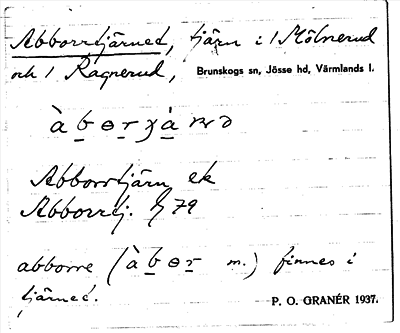 Abborrtjärnet, tjärn i 1 Mölnerud
och 1 Ragnerud, Brunskogs sn, Jösse hd, Värmlands l.
Abborrtjärn ek
Abborrtj. 79
abborre (m.) finnes i
tjärnet.
P. O. GRANÉR 1937.